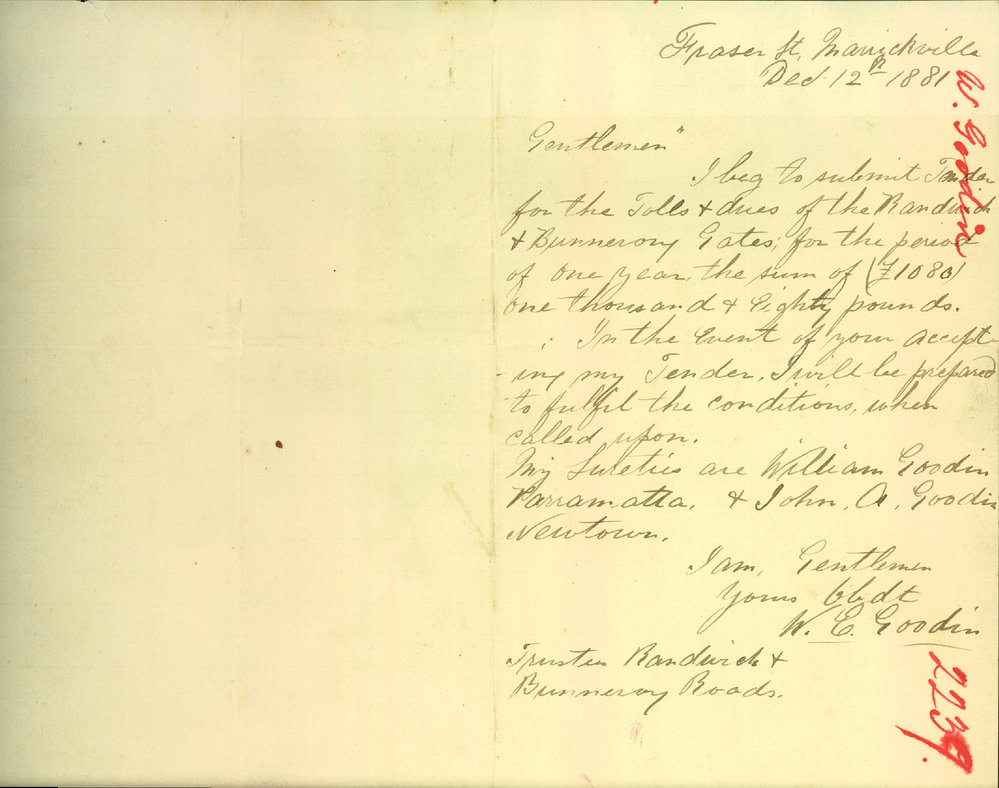 Fraser St, Marrickville
Dec 12th 1881
Gentlemen"
I beg to submit Tender
for the Tolls & dues of the Randwich
& Bunnerony Gates, for the period
of one year, the sum of (£1080)
one thousand & Eighty pounds.
In the Event of your accept-
-ing my Tender, I will be prepared
to fulfil the conditions, when
called upon.
My Sureties are William Goodin
Parramatta, & John. A. Goodin
Newtown.
I am, Gentlemen
Yours Obdt
W. E. Goodin
Trustees Randwick &
Bunnerony Roads.
W. Goodin
2239.